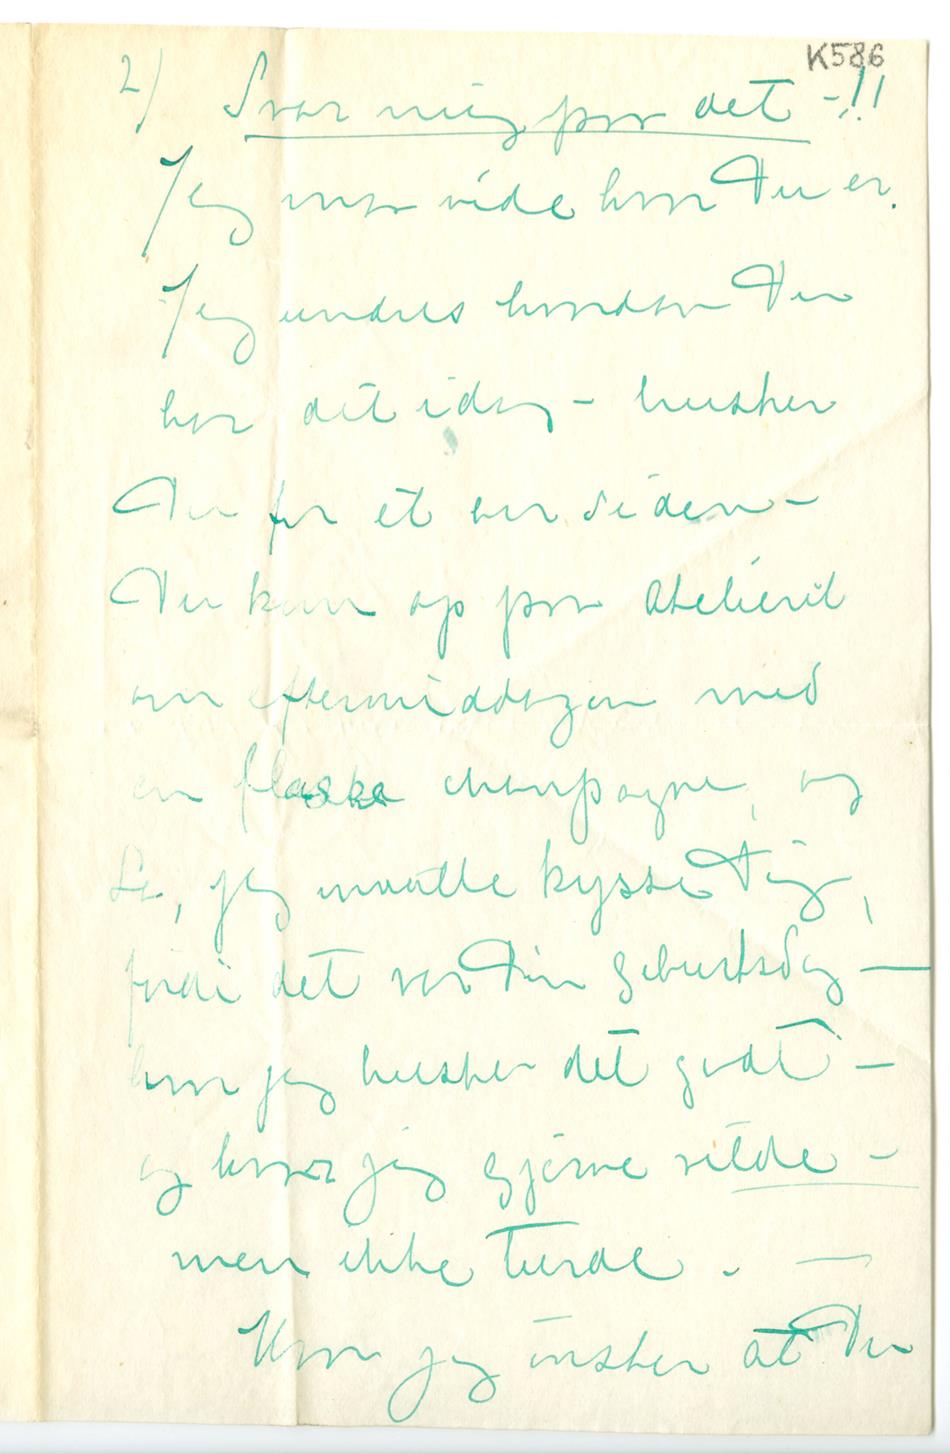 K586
2) Svar mig paa det -!!
Jeg maa vide hvor Du er.
Jeg undres hvordan Du
har det idag - husker
Du for et aar siden -
Du kom op paa atelieret
om eftermiddagen med
en flaske champagne, og
Du, jeg maatte kysse Dig,
fordi det var Din geburtsdag —
hvor jeg husker det godt -
og hvor jeg gjerne vilde -
men ikke turde. - —
Hvor jeg ønsker at Du